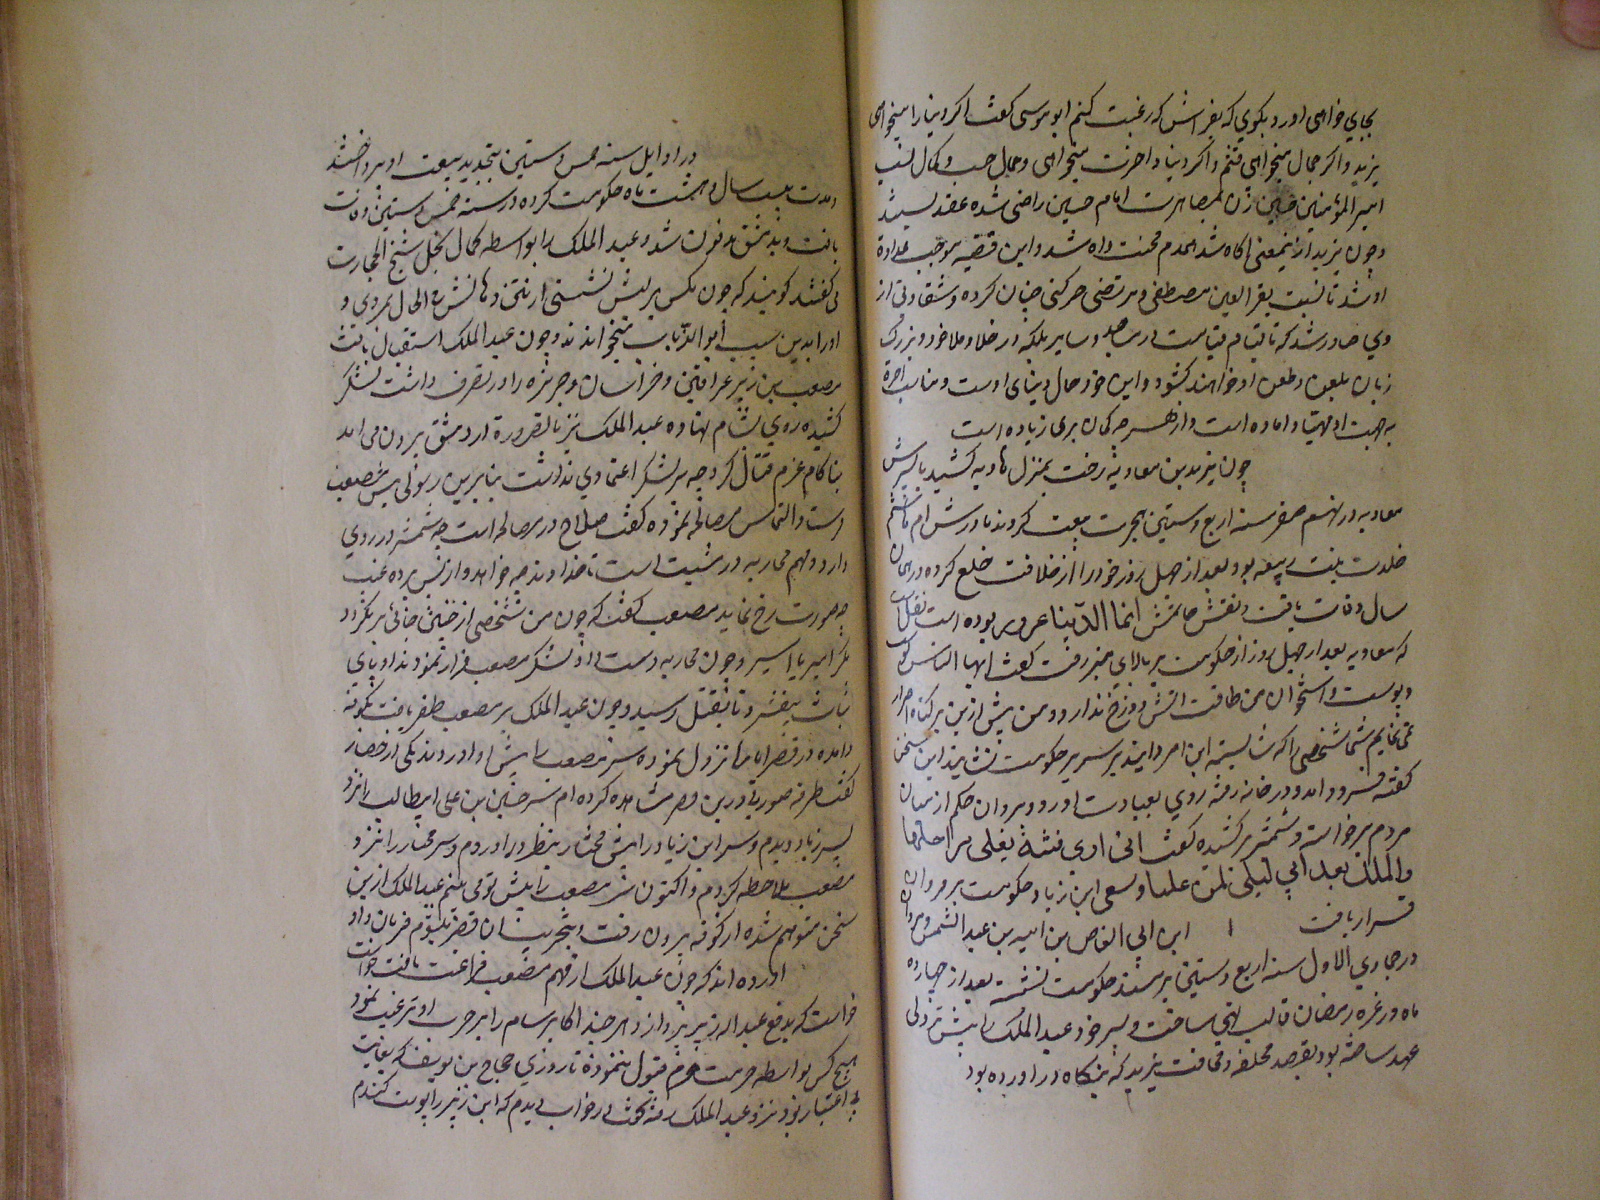 بجای خواهی اورد بکوی که بفراش که رغبت کنم ابو موسی کفت اکر دنیا را میخواهی
یزید و اکر جمال میخواهی و اکر دنیا و اخرت میخواهی و جمال حسب و کمال نسب
امیر المؤمنین حسین زن بمصاهرت امام حسین راضی شده عقد بستند
و چون یزید ازینمعنی اکاه شد همدم محنت و اه شد و این قضیه موجب عداوة
او شد تا نسبت بقرة العین مصطفی و مرتضی حرکتی چنان کرده و شقاوتی از
وی صادر شد که تا قیام قیامت در مساجد و منابر بلکه در خلا و ملا خرد و بزرک
زبان بلعن و طعن او خواهند کشود و این خود حال دنیای اوست و عذاب اخرة
به جهت او مهیا و اماده است و از هر چه کمان بری زیاده است
چون یزید بن معاویه رخت بمنزل هاویه کشید با پسرش
معاویه در نهم صفر سنه اربع و ستین هجرت بیعت کردند مادرش ام هاشم
خلدت بنت ربیعه بود بعد از چهل روز خود را از خلافت خلع کرده در همان
سال وفات یافت و نقش خاتمش انما الدنیا غرور بوده است نقلست
که معاویه بعد از چهل روز از حکومت بر بالای منبر رفت کفت ایها الناس
و پوست و استخوان من طاقت اتش دوزخ ندارد و من بیش ازین بر کناه اصرار
نمی نمایم شما شخصی را که شایسته این امر دانید بر سریر حکومت نشانید این سخن
کفته فرود امد و در خانه رفته روی بعبادت اورد و مروان حکم از میان
مردم برخاسته و شمشیر برکشیده کفت انی اری فتنة یغلی مراجلها
والملک بعد ابی لیلی لمن غلبا و بسعی ابن زیاد حکومت بر مروان
قرار یافت ا ابن ابی العاص بن امیه بن عبد الشمس
در جمادی الاول سنه اربع و ستین بر مسند حکومت نشسته بعد از چهارده
ماه در غره رمضان قالب تهی ساخت و پسر خود عبد الملک را پیشتر ولی
عهد ساخته بود بقصد مخالفت یزید که بنکاه در اورده بود
در اوایل سنه خمس و ستین بتجدید بیعت او پرداختند
و مدت بیست سال و هشت ماه حکومت کرده در سنه خمس و ستین وفات
یافت و بدمشق مدفون شد و عبد الملک را بواسطه کمال بخل رشح الحجارت
می کفتند کویند که چون مکس بر لبش نشستی از نتن دهانش فی الحال بمردی و
او را بدین سبب ابو الذباب میخواندند و چون عبد الملک استقبال یافت
مصعب بن زبیر عراقین و خراسان و جزیره را در تصرف داشت لشکر
کشیده روی بشام نهاده عبد الملک نیز بالضرورة از دمشق بیرون می امد
بناکام عزم قتال کرد چه بر لشکر اعتمادی نداشت بنابرین رسولی پیش مصعب
فرستاد و التماس مصالحه نموده کفت صلاح در مصالحه است چه شمشیر دو روی
دارد و مهم محاربه در مشیت است تا خداوند چه خواهد و از پس پرده غیب
چه صورت رخ نماید مصعب کفت که چون من شخصی از چنین جائی بر نکردد
مکر امیر یا اسیر و چون محاربه دست داد لشکر مصعب فرار نمودند او پای
ثبات بیفشرد تا بقتل رسید و چون عبد الملک بر مصعب ظفر یافت بکوفه
درامده در قصر امارت نزول نموده سر مصعب را پیش او اوردند یکی از حضار
کفت طرفه صورتی درین قصر مشاهده کرده ام سر حسین بن علی ابیطالب را نزد
پسر زیاد دیدم و سر ابن زیاد را پیش مختار بنظر در اوردم و سر مختار را نزد
مصعب ملاحظه کردم و اکنون سر مصعب را پیش تو می بینم عبد الملک ازین
سخن متوهم شده از کوفه بیرون رفت و بتخریب ان قصر میشوم فرمان داد
اورده اند که چون عبد الملک از مهم مصعب فراغت یافت
خواست که بدفع عبد اله زبیر پردازد هر چند اکابر شام را بر حرب او ترغیب نمود
هیچ کس بواسطه حرمت حرم قبول ننمود تا روزی حجاج بن یوسف که بغایت
بی اعتبار بود نزد عبد الملک رفته کفت در خواب دیدم که ابن زبیر را پوست کندم